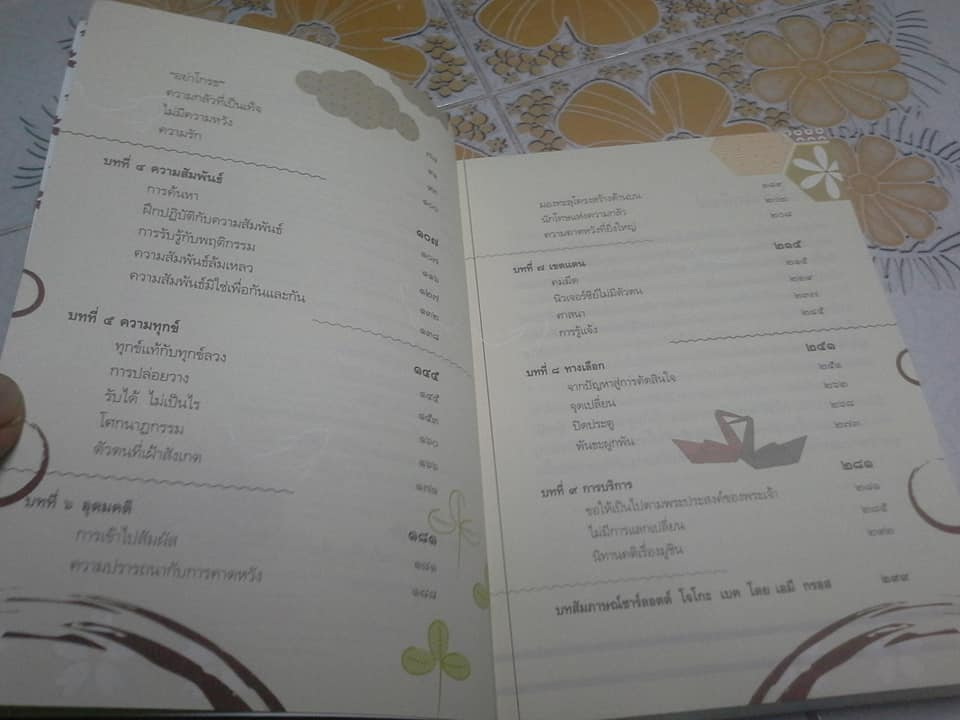 "อย่าโกรธ"
ความกลัวที่เป็นเท็จ ๗๘
ไม่มีความหวัง ๙๑
ความรัก
๑๐๐
บทที่ ๔ ความสัมพันธ์ ๑๐๗
การค้นหา ๑๐๗
ฝึกปฏิบัติกับความสัมพันธ์ ๑๑๖
การรับรู้กับพฤติกรรม ๑๒๗
ความสัมพันธ์ล้มเหลว ๑๓๒
ความสัมพันธ์มิใช่เพื่อกันและกัน ๑๓๘
บทที่ ๕ ความทุกข์ ๑๔๕
ทุกข์แท้กับทุกข์ลวง ๑๔๕
การปล่อยวาง ๑๕๓
รับได้ ไม่เป็นไร ๑๖๐
โศกนาฏกรรม ๑๖๖
ตัวตนที่เฝ้าสังเกต ๑๗๑
บทที่ ๖ อุดมคติ ๑๘๑
การเข้าไปสัมผัส ๑๘๑
ความปรารถนากับการคาดหวัง ๑๘๘
มองทะลุโครงสร้างด้านบน ๑๙๙
นักโทษแห่งความกลัว ๒๐๒
ความคาดหวังที่ยิ่งใหญ่ ๒๐๘
บทที่ ๗ เขตแดน ๒๑๕
คมมีด ๒๑๕
นิวเจอร์ซีย์ไม่มีตัวตน ๒๒๙
ศาสนา ๒๓๗
การรู้แจ้ง ๒๔๕
บทที่ ๘ ทางเลือก ๒๕๑
จากปัญหาสู่การตัดสินใจ ๒๕๑
จุดเปลี่ยน ๒๖๒
ปิดประตู ๒๖๘
พันธะผูกพัน ๒๗๓
บทที่ ๙ การบริการ ๒๘๑
ขอให้เป็นไปตามพระประสงค์ของพระเจ้า ๒๘๑
ไม่มีการแลกเปลี่ยน ๒๘๕
นิทานคติเรื่องมูซิน ๒๙๒
บทสัมภาษณ์ชาร์ลอตต์ โจโกะ เบค โดย เอมี กรอส ๒๙๙